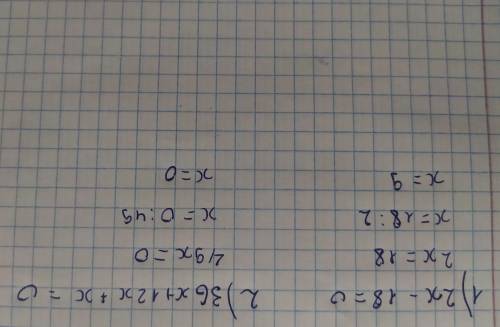 1) 2x - 18 = 0
2x = 18
x = 18 : 2
x = 9
2) 36x + 12x + x = 0
49x = 0
x = 0 : 49
x = 0